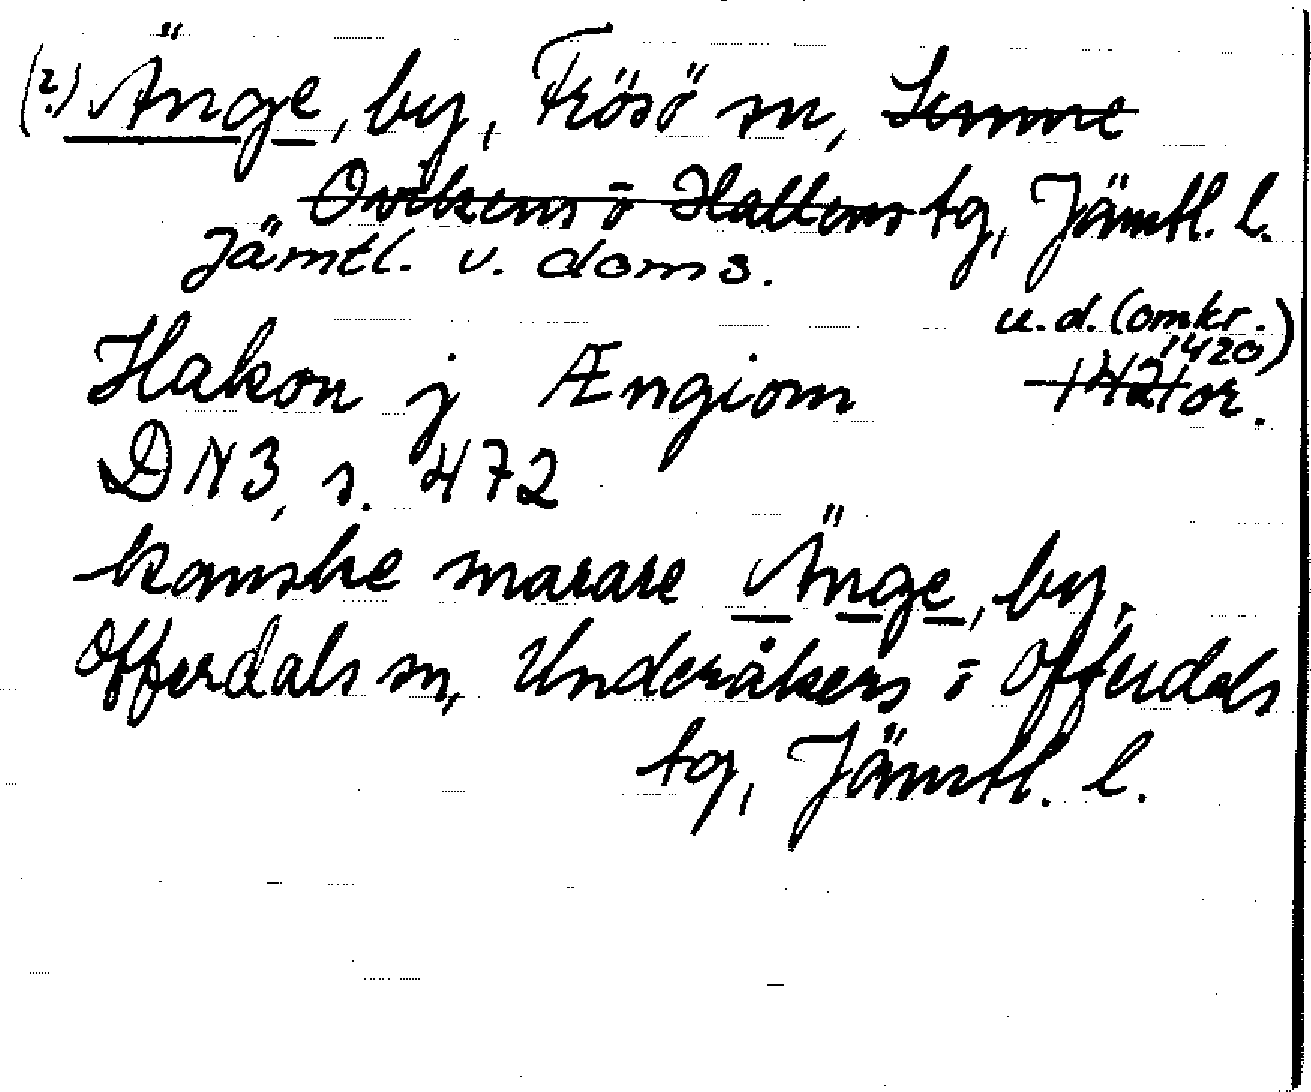 (?) Änge, by, Frösö sn, Sunne
Ovikens o Hallens tg, Jämtl. l.
Jämtl. v. doms.
u.d. (omkr. 1420)
Hakon j Ængiom 1421 or.
DN 3, s. 472
kanske snarare Änge, by,
Offerdals sn, Undersåkers o Offerdals
tg, Jämtl. l.